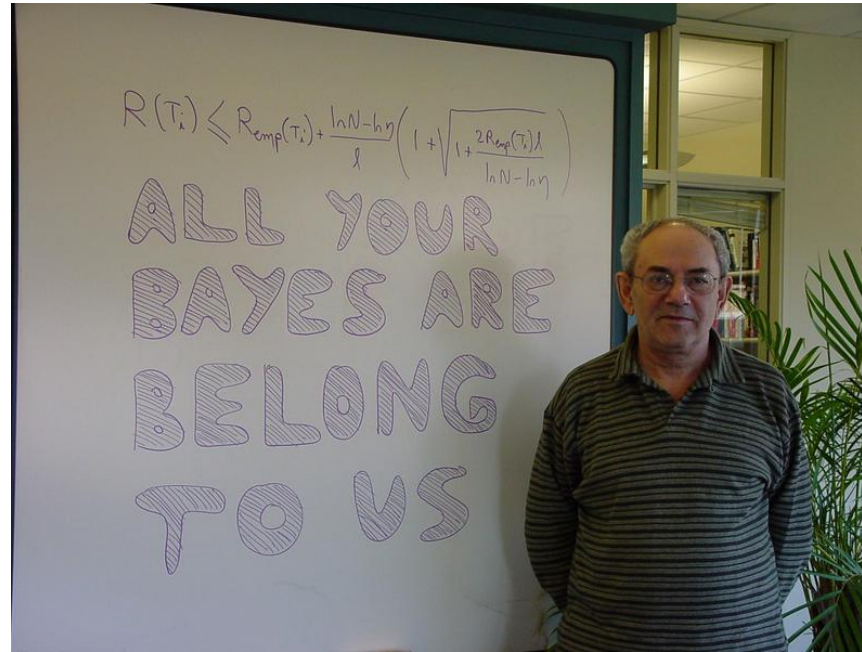 R(Tᵢ) ⩽ R_emp(Tᵢ) + (ln N − ln η)/l (1 + √(1 + (2R_emp(Tᵢ) l)/(ln N − ln η)))
ALL YOUR
BAYES ARE
BELONG
TO US